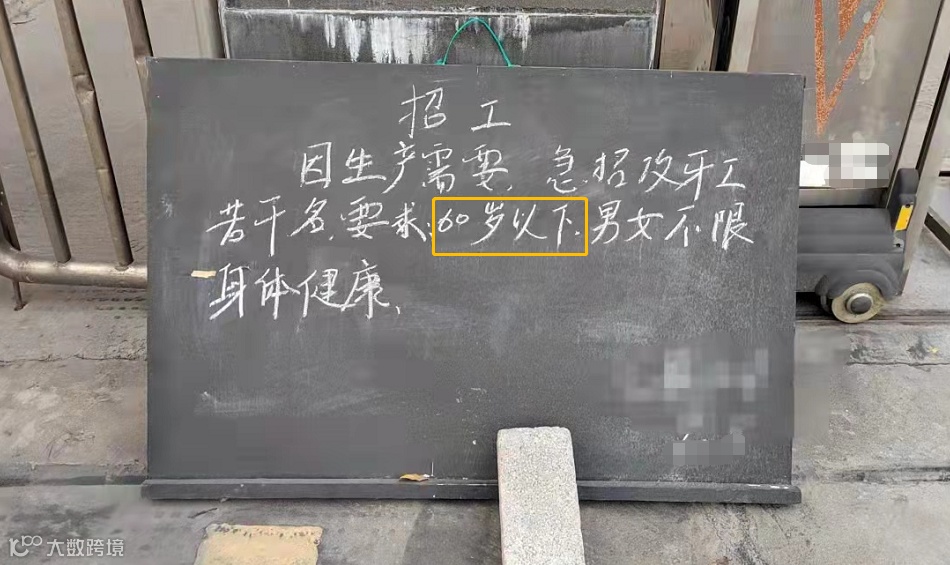 招工
因生产需要，急招攻牙工
若干名，要求：60岁以下，男女不限
身体健康、
大数跨境